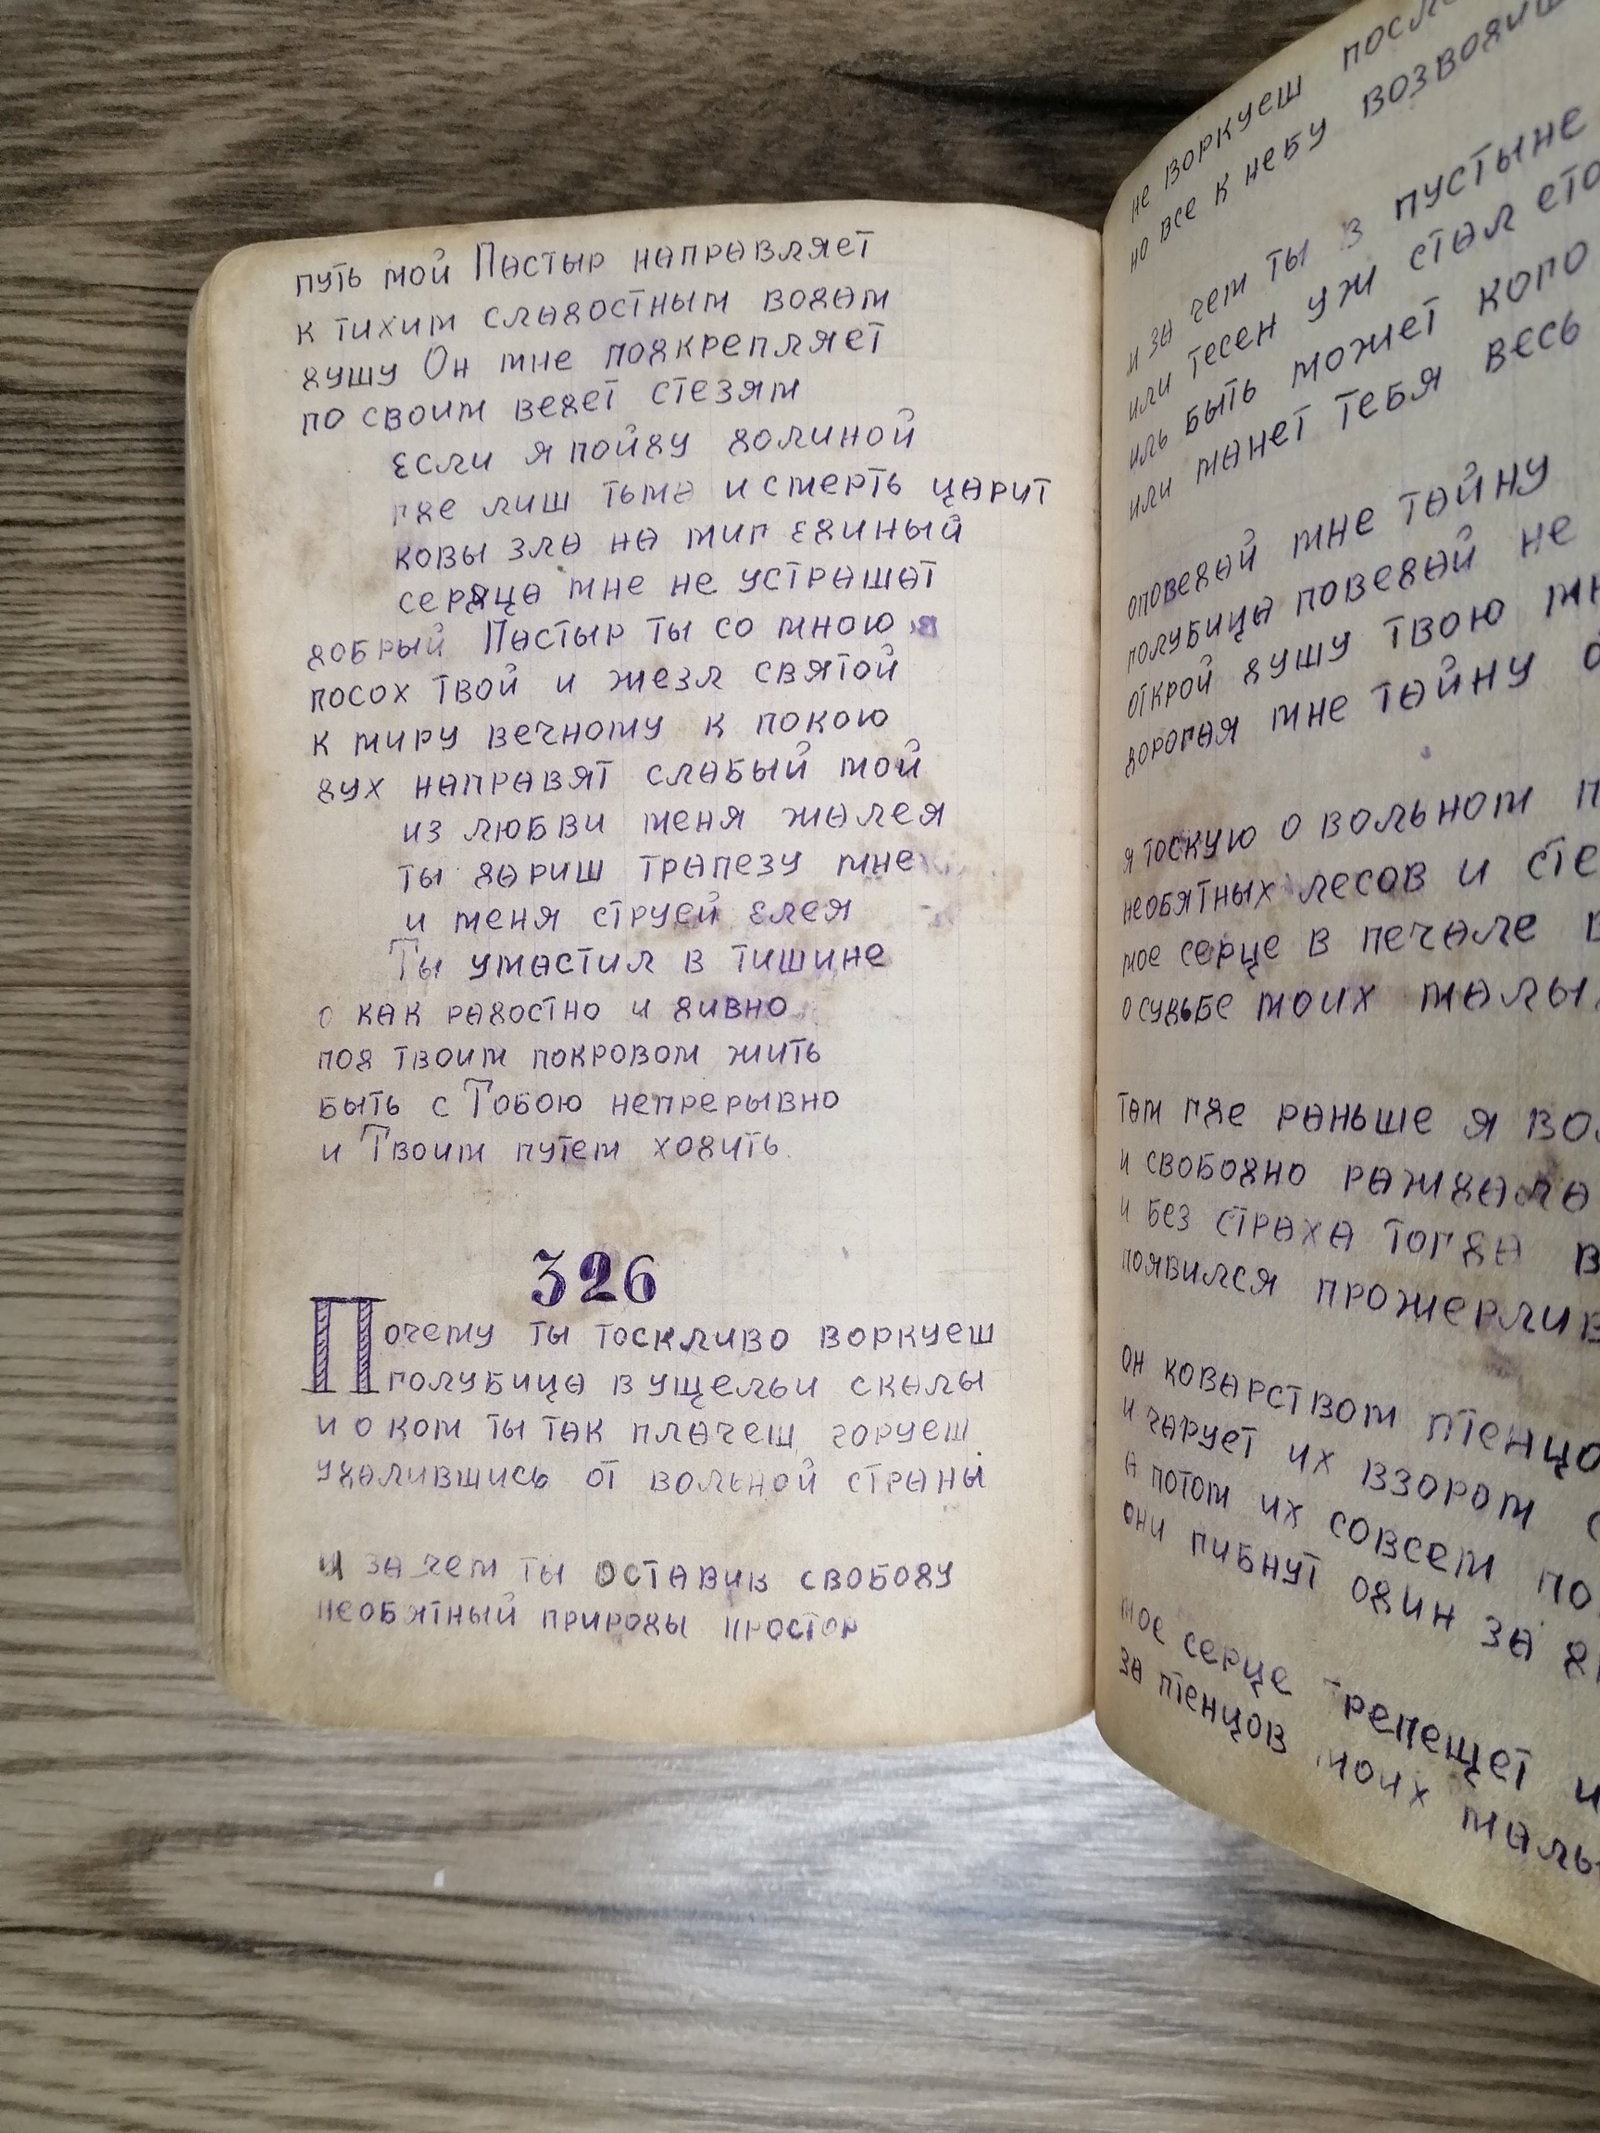 путь мой Пастыр направляет
к тихим сладостным водам
душу Он мне подкрепляет
по своим ведет стезям
если я пойду долиной
где лиш тьма и смерть царит
ковы зла на миг единый
сердца мне не устрашат
добрый Пастыр ты со мною
посох твой и жезл святой
к миру вечному к покою
дух направят слабый мой
из любви меня жалея
ты дариш трапезу мне
и меня струей елея
Ты умастил в тишине
о как радостно и дивно
под твоим покровом жить
быть с Тобою непрерывно
и Твоим путем ходить.
326
Почему ты тоскливо воркуеш
голубица в ущельи скалы
и о ком ты так плачеш горуеш
удалившись от вольной страны
и за чем ты оставив свободу
необятный природы простор
не воркуеш
но все к небу возводиш
и за чем ты в пустыне
или тесен уж стал
иль быть может кого
или манет тебя весь
оповедай мне тайну
голубица поведай не
открой душу твою
дорогая мне тайну
я тоскую о вольном
необятных лесов и
мое серце в печале
о судьбе моих
там где раньше я
и свободно раждала
и без страха тогда
появился
он коварством
и чарует их взором
а потом их совсем
они гибнут один за
мое серце трепещет и
за птенцов моих